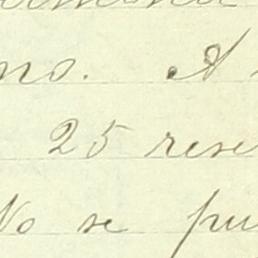 no. A
25 rese
No se pu